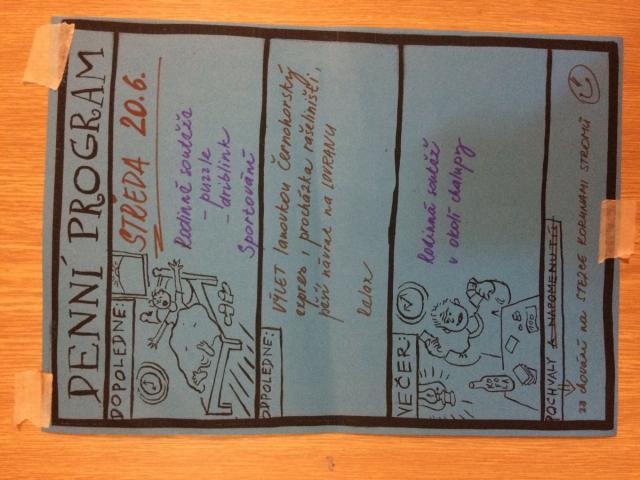 DENNÍ PROGRAM
DOPOLEDNE:
STŘEDA 20.6.
Rodinná soutěž
- puzzle
- dribblink
Sportování
ODPOLEDNE:
VÝLET lanovkou Černohorský
express, procházka rašeliništi,
pěší návrat na LOVRANU
Relax
VEČER:
Rodinná soutěž
v okolí chalupy
KOFOLA
POCHVALY A NAPOMENUTÍ
za chování na STEZCE KORUNAMI STROMŮ